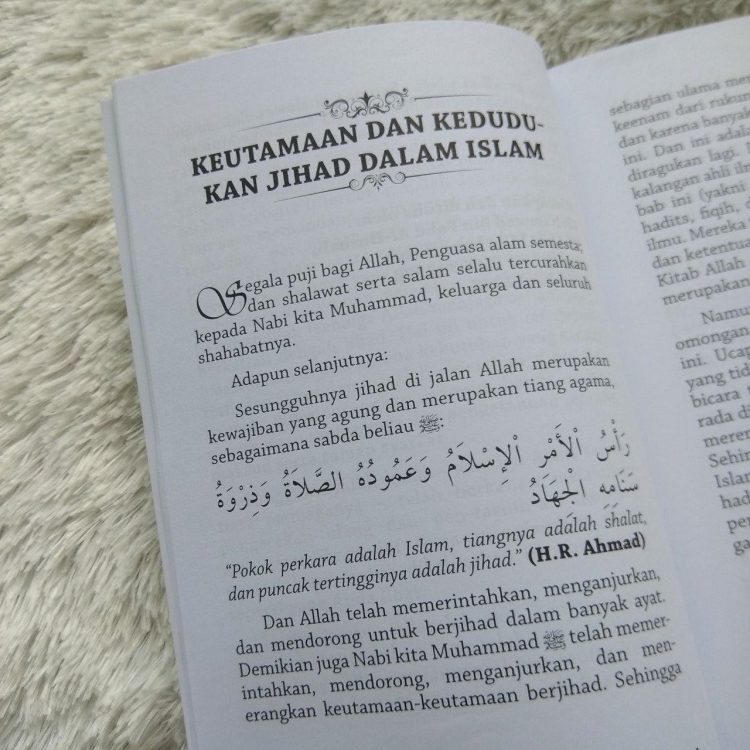 KEUTAMAAN DAN KEDUDU-
KAN JIHAD DALAM ISLAM
Segala puji bagi Allah, Penguasa alam semesta;
dan shalawat serta salam selalu tercurahkan
kepada Nabi kita Muhammad, keluarga dan seluruh
shahabatnya.
Adapun selanjutnya:
Sesungguhnya jihad di jalan Allah merupakan
kewajiban yang agung dan merupakan tiang agama,
sebagaimana sabda beliau ﷺ:
رَأْسُ الْأَمْرِ الْإِسْلَامُ وَعَمُودُهُ الصَّلَاةُ وَذِرْوَةُ
سَنَامِهِ الْجِهَادُ
“Pokok perkara adalah Islam, tiangnya adalah shalat,
dan puncak tertingginya adalah jihad.” (H.R. Ahmad)
Dan Allah telah memerintahkan, menganjurkan,
dan mendorong untuk berjihad dalam banyak ayat.
Demikian juga Nabi kita Muhammad ﷺ telah memer-
intahkan, mendorong, menganjurkan, dan men-
erangkan keutamaan-keutamaan berjihad. Sehingga
sebagian ulama
keenam dari
dan karena banyak
ini. Dan ini
diragukan lagi.
kalangan ahli
bab ini (yakni
hadits, fiqih,
ilmu. Mereka
dan
Kitab Allah
merupakan
omongan
ini.
yang
bicara
rada